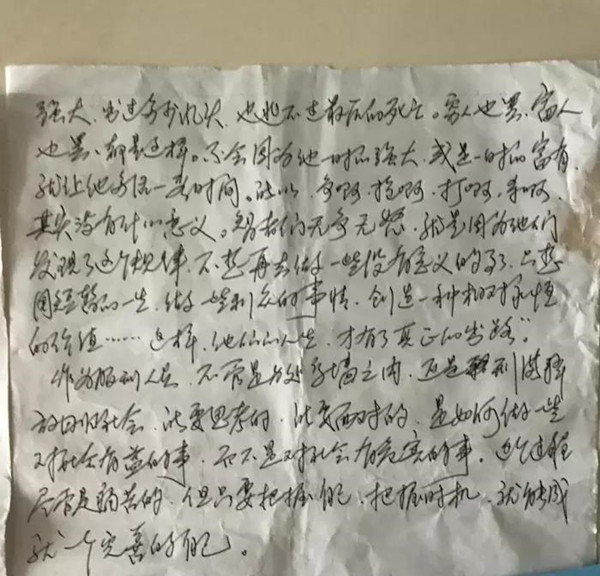 强大、出过多少风头,也逃不过最后的死亡。穷人也罢、富人
也罢、都是这样。不会因为他一时的强大、或是一时的富有,
就让他多活一些时间。所以,争啊,抢啊,打啊,杀啊,
其实没有什么意义。智者们无争无怒,就是因为他们
发现了这个规律,不想再去做一些没有意义的事了,只想
用短暂的一生,做一些利众的事情,创造一种相对永恒
的价值……这样,他们的人生,才有了真正的出路”。
作为服刑人员,不管是身处高墙之内,还是刑满释
放回归社会,所要思考的,所要面对的,是如何做一些
对社会有益的事,而不是对社会有危害的事,这个过程
尽管是痛苦的,但只要把握自己,把握时机,就能成
就一个完善的自己。